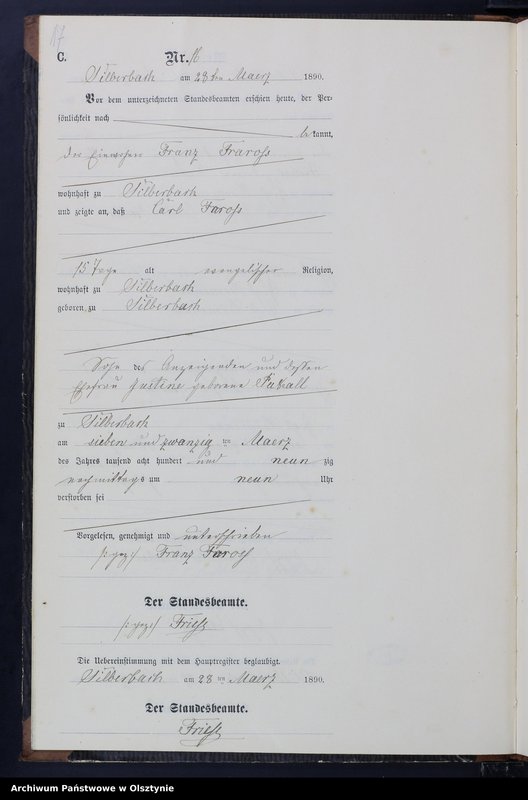 17
C.
Nr. 16
Silberbach am 28ten Maerz 1890.
Vor dem unterzeichneten Standesbeamten erschien heute, der Per-
sönlichkeit nach
bekannt,
der Einwohner Franz Fraross
wohnhaft zu Silberbach
und zeigte an, daß Carl Faross
15 Tage alt evangelischer Religion,
wohnhaft zu Silberbach
geboren zu Silberbach
Sohn des Anzeigenden und dessen
Ehefrau Justine geborene
zu Silberbach
am sieben und zwanzig ten Maerz
des Jahres tausend acht hundert und neun zig
nachmittags um neun Uhr
verstorben sei
Vorgelesen, genehmigt und unterschrieben
Franz Faross
Der Standesbeamte.
Friese
Die Uebereinstimmung mit dem Hauptregister beglaubigt.
Silberbach am 28 ten Maerz 1890.
Der Standesbeamte.
Friese
Archiwum Państwowe w Olsztynie